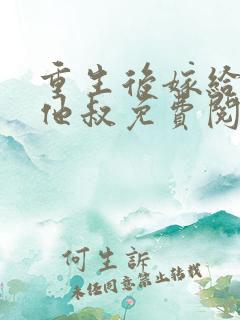 重生後嫁給
他叔免費閱
何生訴
未經同意禁止轉載